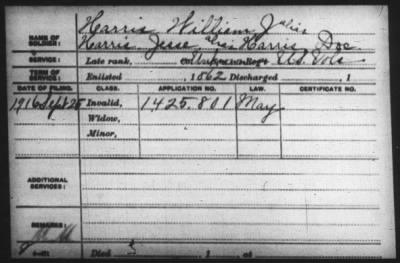 Harris, William J alias
NAME OF SOLDIER: Harris, Jesse alias Harris, Doc
SERVICE: Late rank, Regt Vols
TERM OF SERVICE: Enlisted , 1862 Discharged , 1
DATE OF FILING. CLASS. APPLICATION NO. LAW. CERTIFICATE NO.
1916 Sept 25 Invalid, 1425.801 May
Widow,
Minor,
ADDITIONAL SERVICES:
REMARKS:
Died , 1 , at